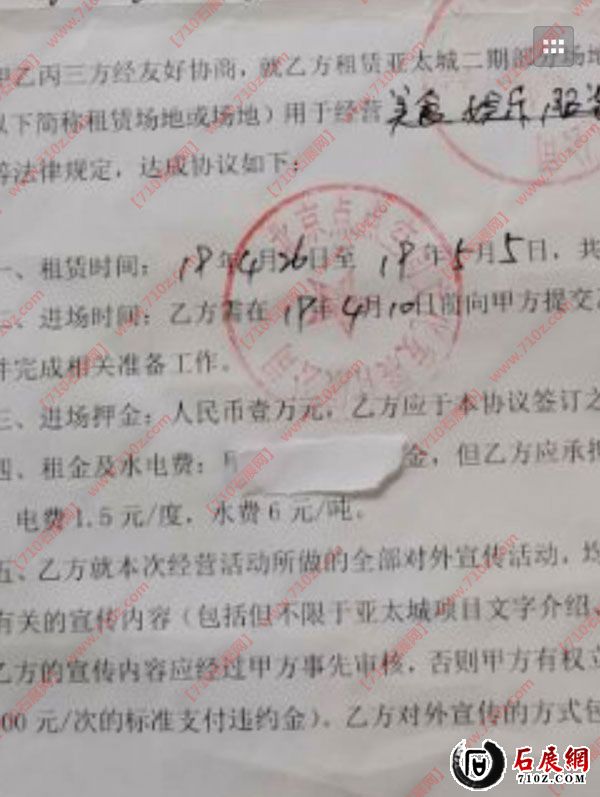 甲乙丙三方经友好协商，就乙方租赁亚太城二期部分场地
以下简称租赁场地或场地）用于经营美食 娱乐，
等法律规定，达成协议如下：
一、租赁时间：18年4月26日至 18年5月5日，共
二、进场时间：乙方需在18年4月10日前向甲方提交
并完成相关准备工作。
三、进场押金：人民币壹万元，乙方应于本协议签订之
四、租金及水电费： 金，但乙方应承担
电费1.5元/度，水费6元/吨。
五、乙方就本次经营活动所做的全部对外宣传活动，均
有关的宣传内容（包括但不限于亚太城项目文字介绍、
乙方的宣传内容应经过甲方事先审核，否则甲方有权立
00元/次的标准支付违约金）。乙方对外宣传的方式包
北京点点空
【710石展网】
www.710z.com
石展網
710Z.COM